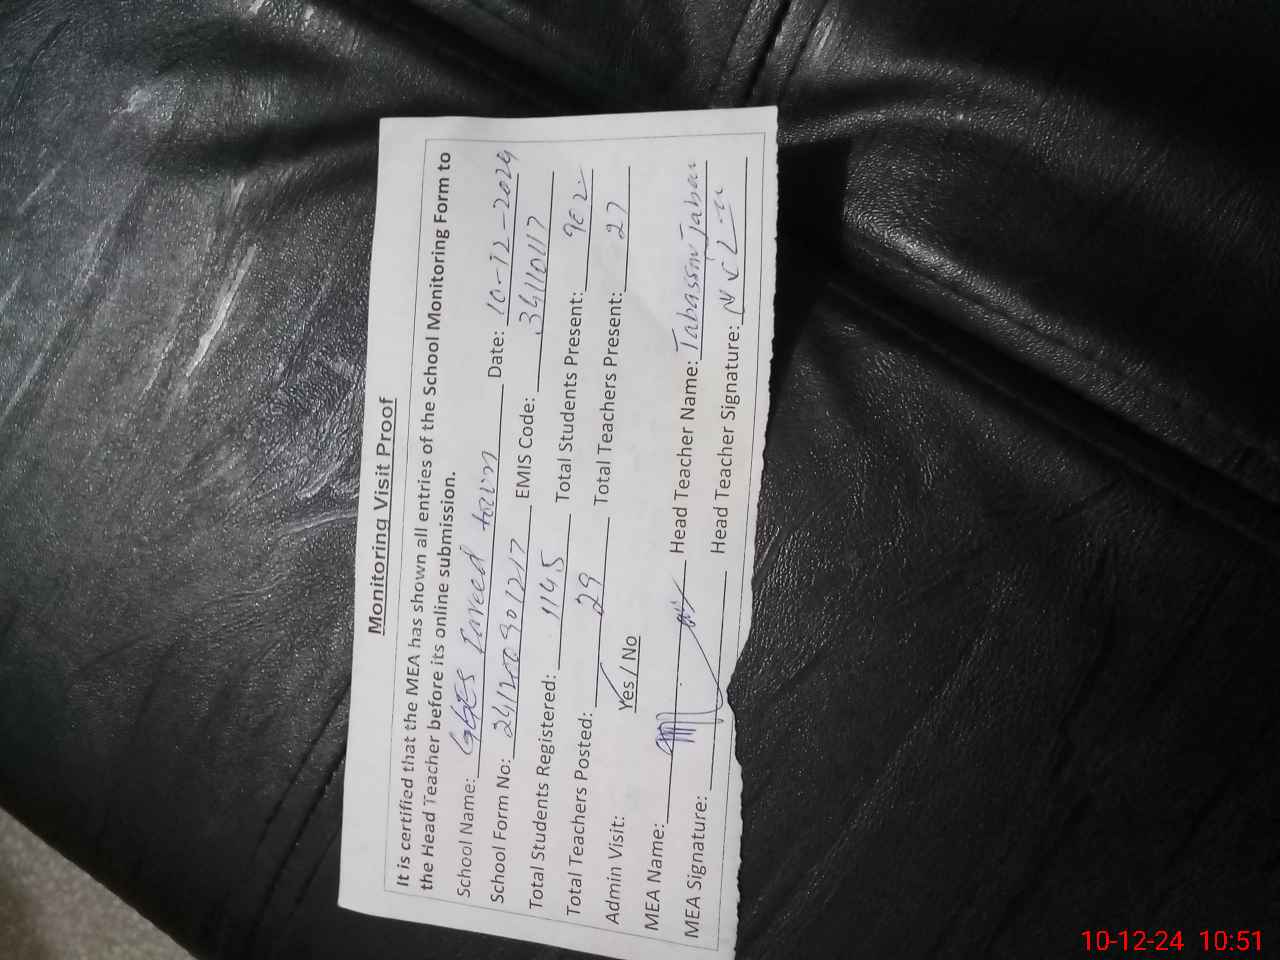 Monitoring Visit Proof
It is certified that the MEA has shown all entries of the School Monitoring Form to
the Head Teacher before its online submission.
School Name: GGES Fareed town Date: 10-12-2024
School Form No: EMIS Code: 34110117
Total Students Registered: 1145 Total Students Present: 902
Total Teachers Posted: 29 Total Teachers Present: 27
Admin Visit: Yes / No
MEA Name: Head Teacher Name: Tabassum
MEA Signature: Head Teacher Signature:
10-12-24 10:51